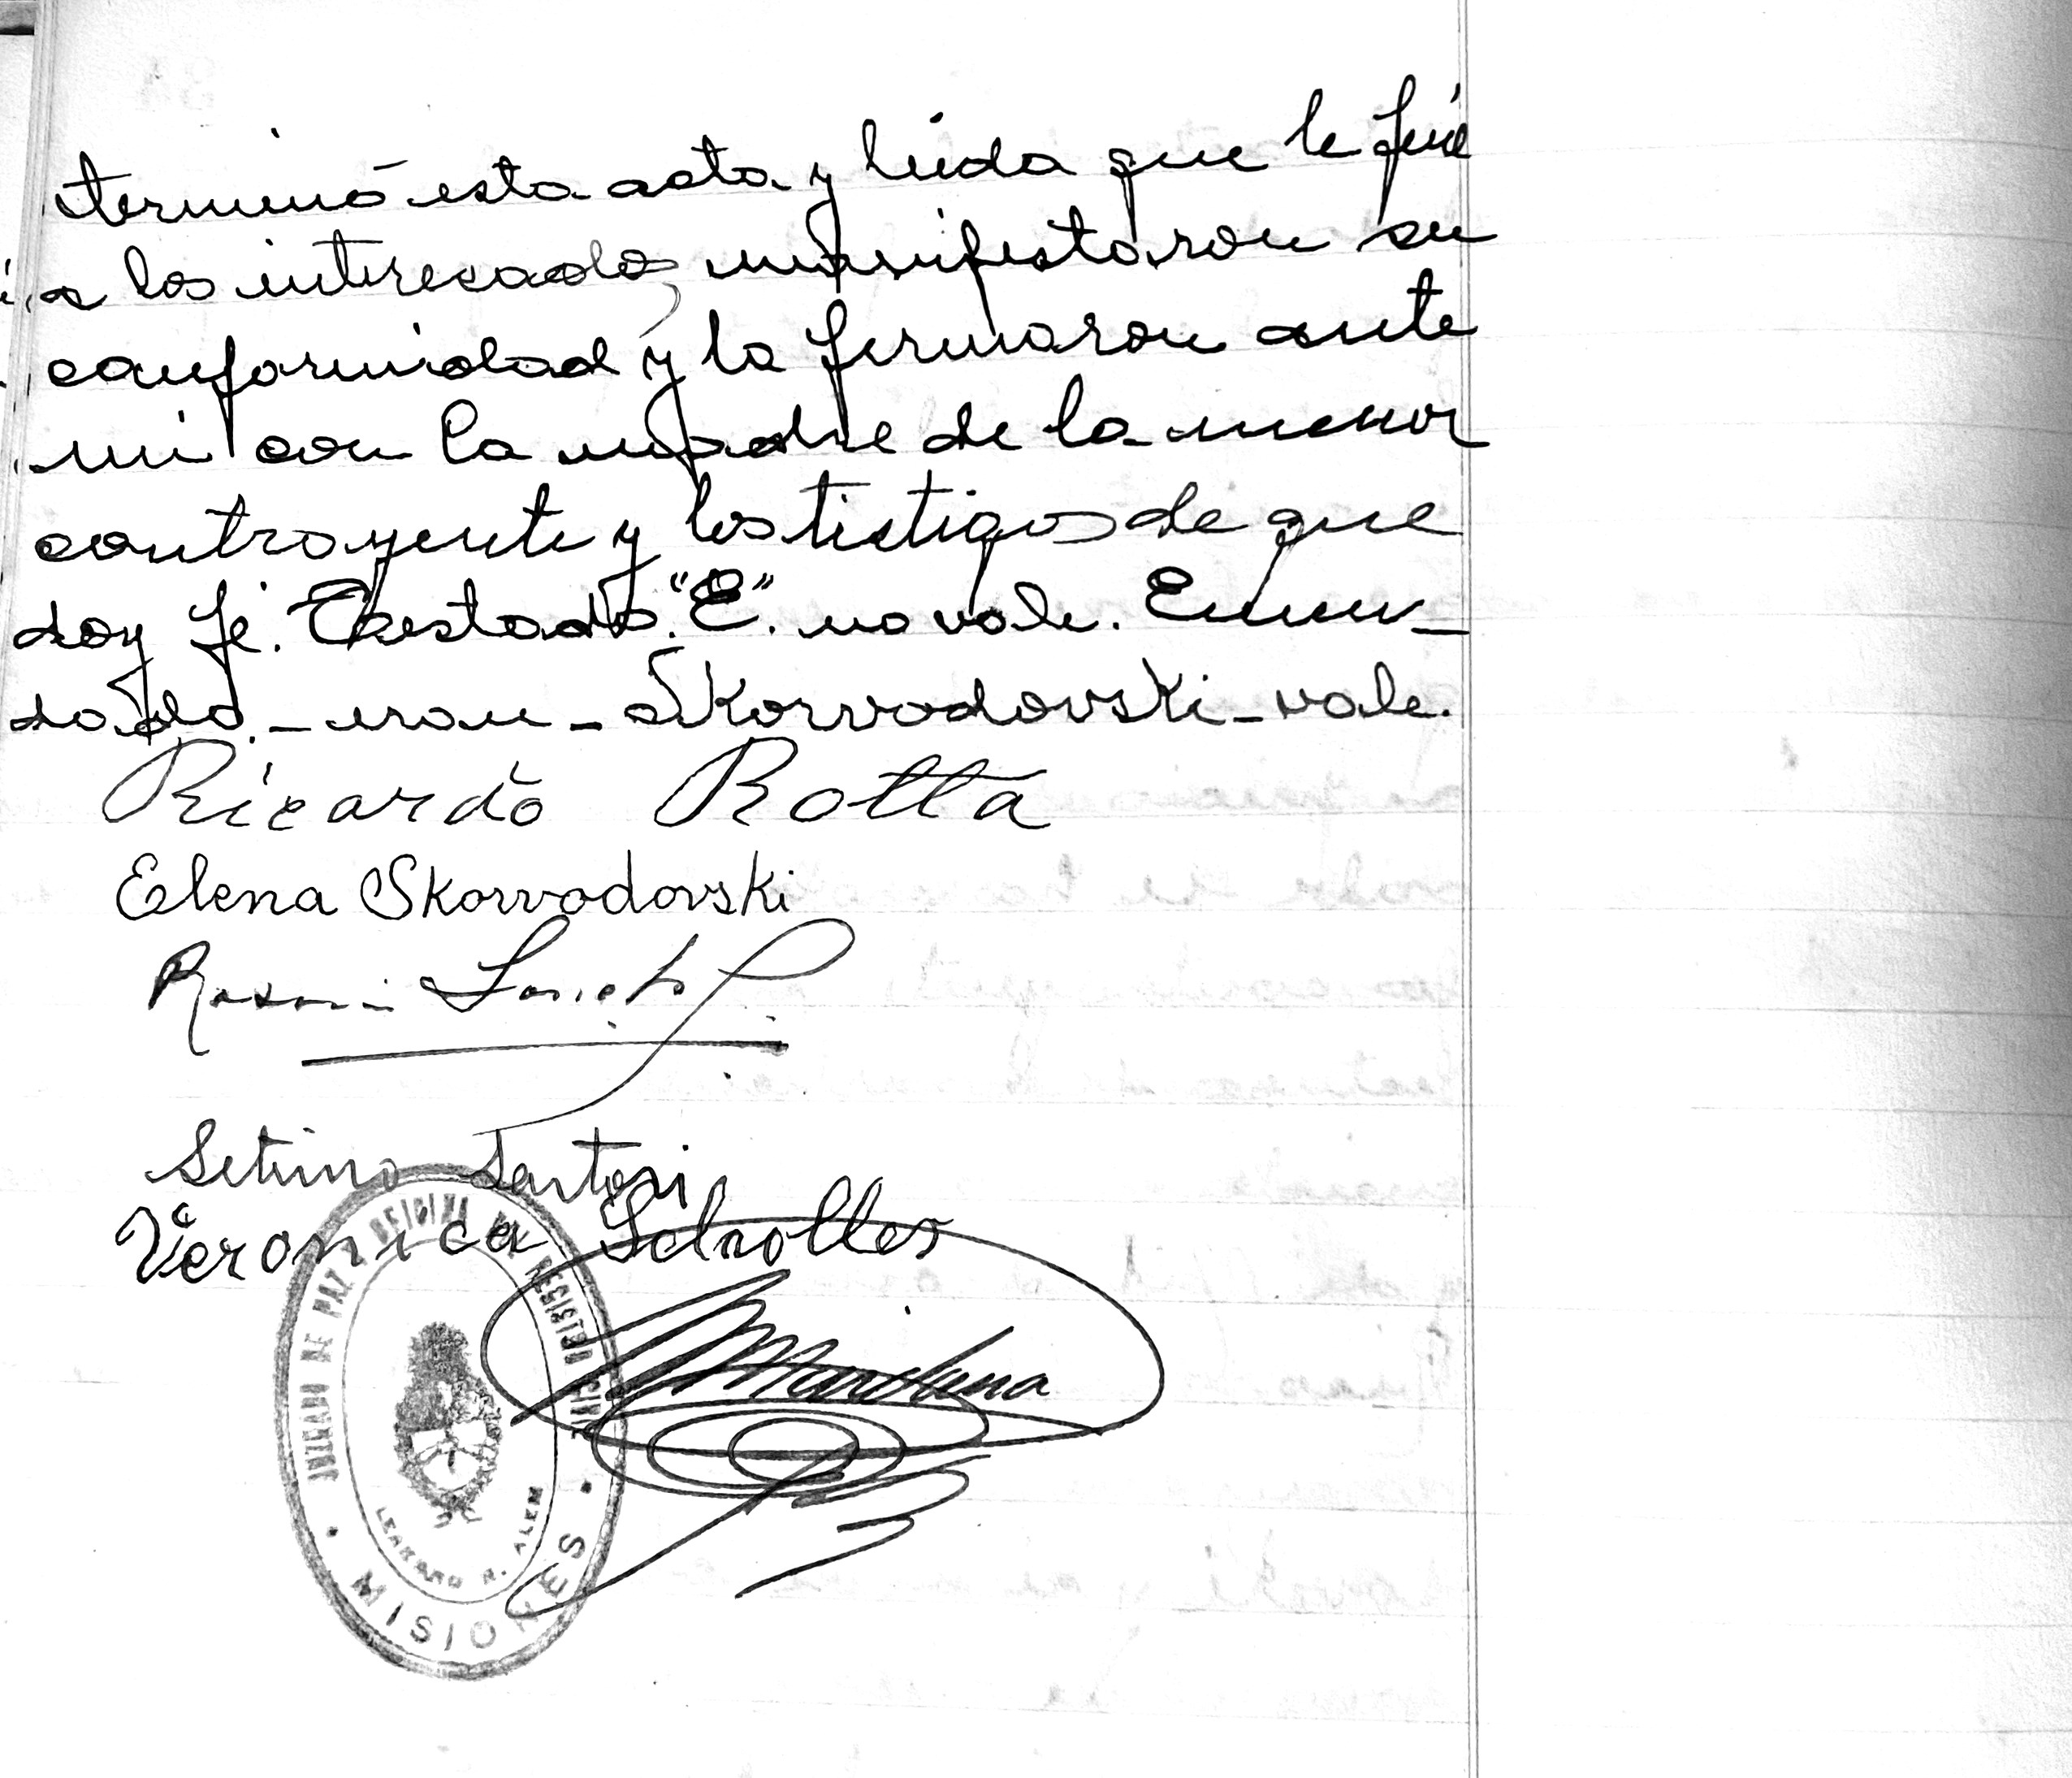 terminó esta acta y leída que le fué
a los interesados, manifestaron su
conformidad y la firmaron ante
mi con la madre de la menor
contrayente y los testigos de que
doy fé. Testado. "E". no vale. Enmen-
dado. - - Skorvodovski - vale.
Ricardo Rotta
Elena Skorvodovski
Setimo Sartori
Veronica
JUZGADO DE PAZ Y OFICINA DEL REGISTRO CIVIL
LEANDRO N. ALEM
MISIONES